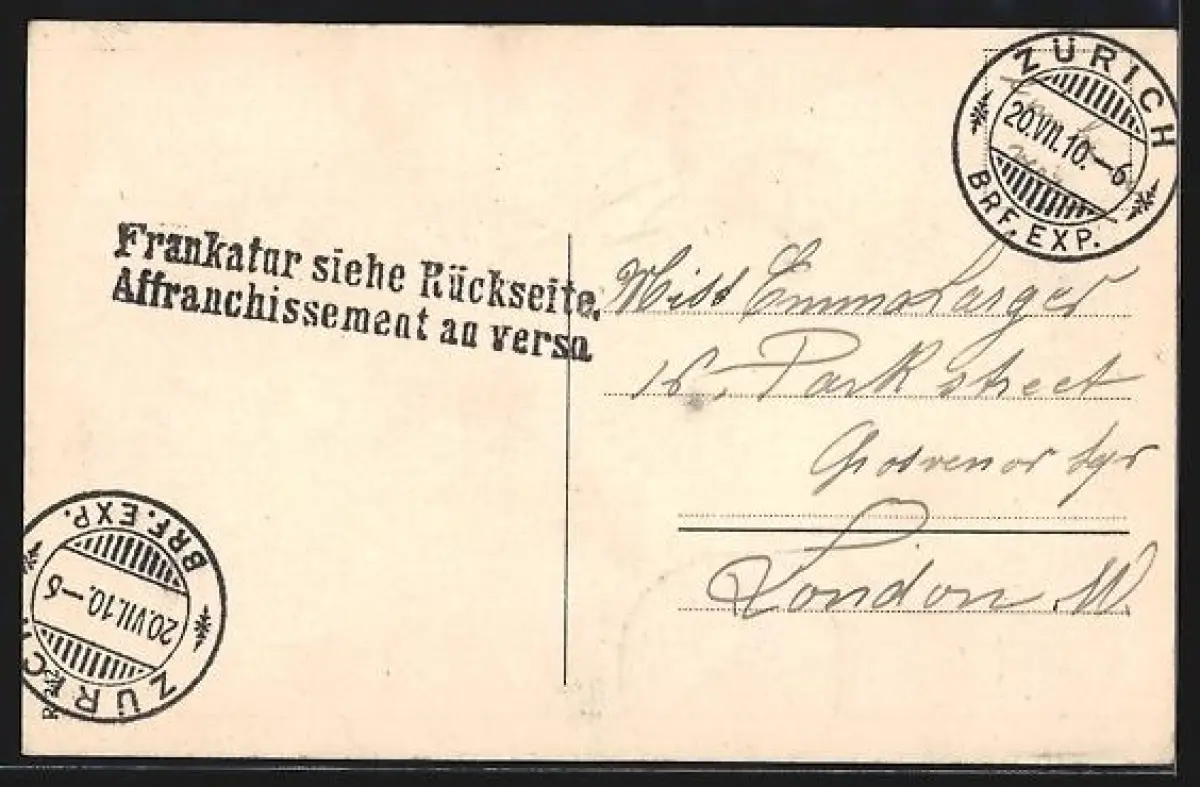 ZÜRICH
20.VII.10.—6
BRF. EXP.
Frankatur siehe Rückseite.
Affranchissement au verso.
Miss Emma Larger
16, Park street
Grosvenor Sqr
London W.
BRF. EXP.
20.VII.10.—6
ZÜRICH